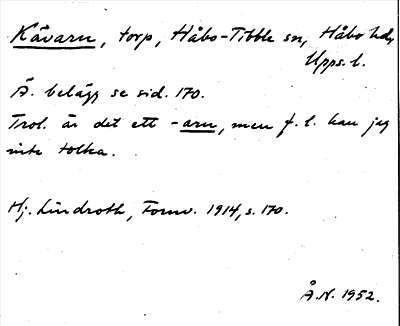 Kävarn, torp, Håbo-Tibble sn, Håbo hd,
Upps. l.
Ä. belägg se sid. 170.
Trol. är det ett -arn, men f. l. kan jag
inte tolka.
Hj. Lindroth, Fornv. 1914, s. 170.
Å.N. 1952.